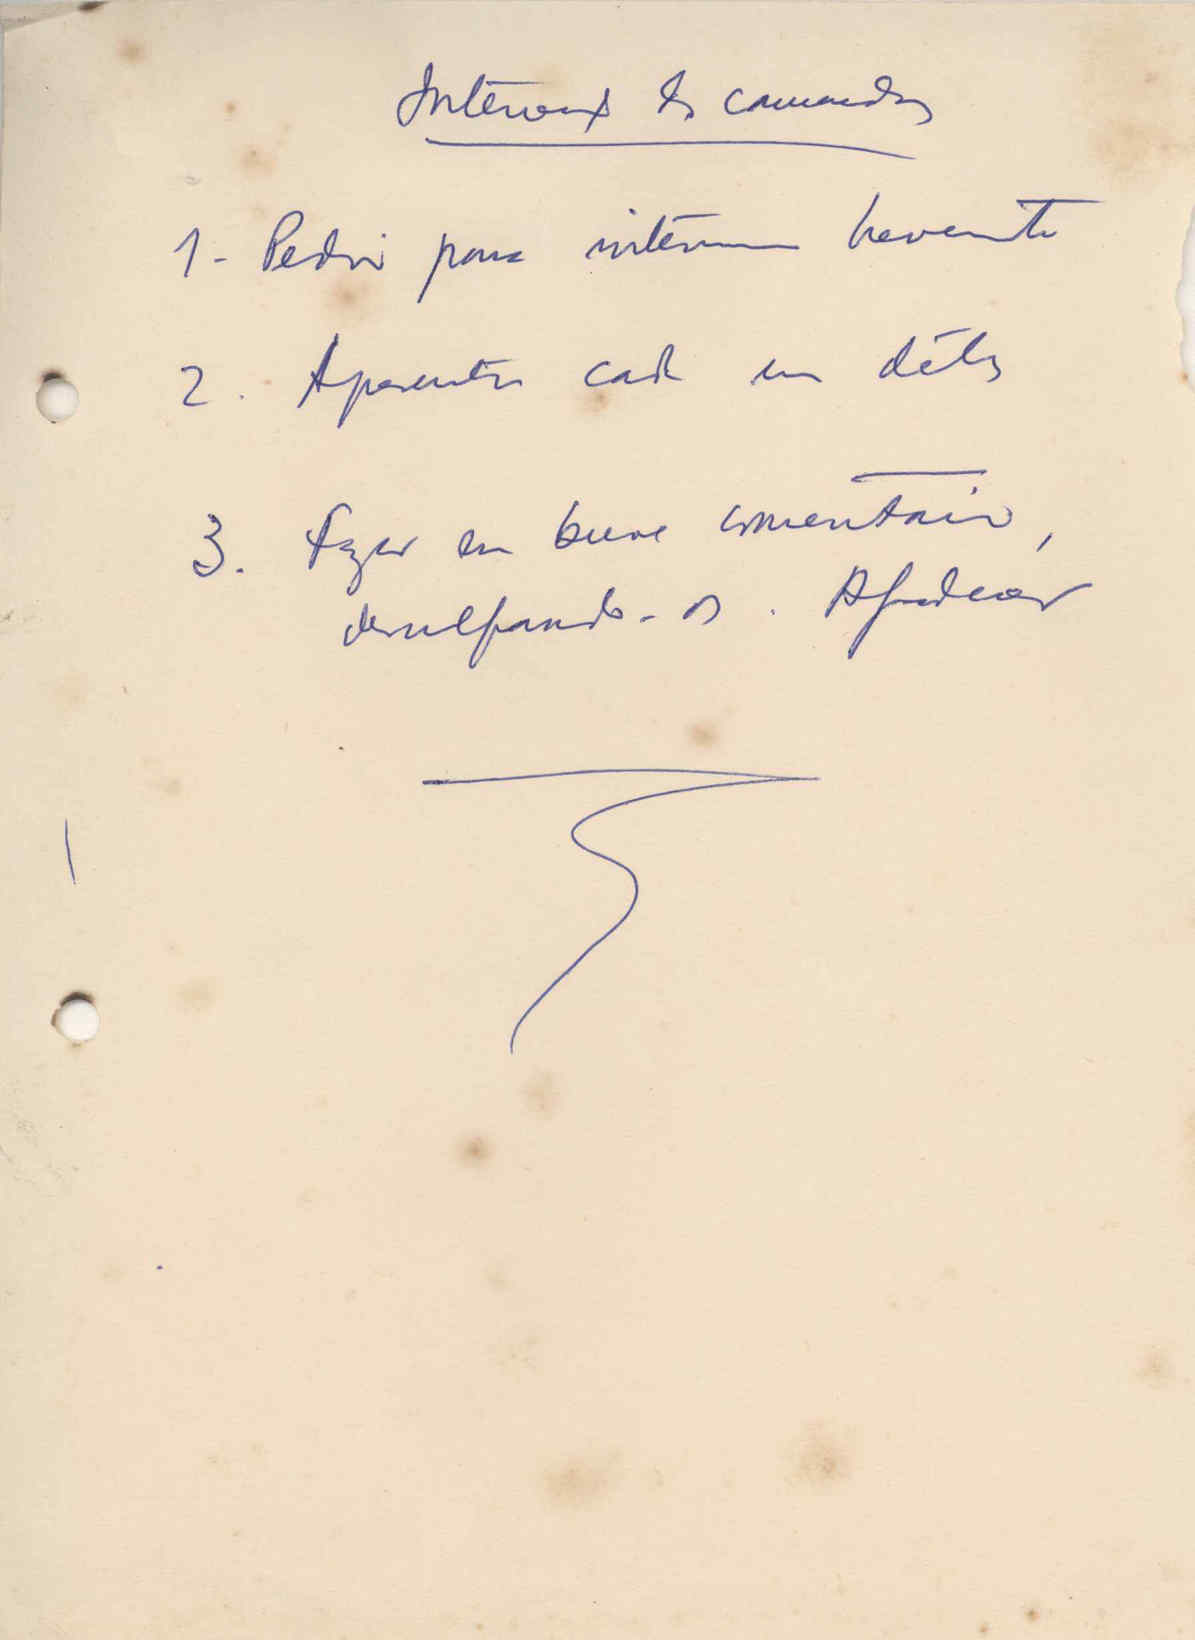 Intervenção dos camaradas
1- Pedir para intervir brevemente
2. Apresentar cada um deles
3. Fazer um breve comentário,
desculpando-os. Agradecer